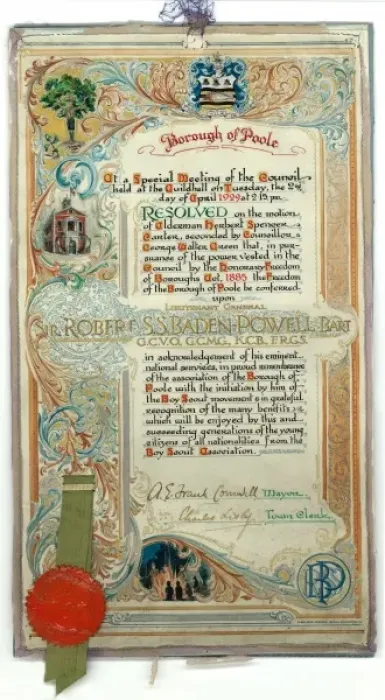 Borough of Poole
At a Special Meeting of the Council
held at the Guildhall on Tuesday, the 2nd
day of April 1929 at 2.15 pm.
RESOLVED on the motion
of Alderman Herbert Spencer
Carter, seconded by Councillor
George Walter Green that, in pur-
suance of the power vested in the
Council by the Honorary Freedom
of Boroughs Act, 1885 the Freedom
of the Borough of Poole be conferred
upon
LIEUTENANT GENERAL
SIR ROBERT S.S. BADEN-POWELL BART
G.C.V.O., G.C.M.G., K.C.B., F.R.G.S.
in acknowledgement of his eminent
national services, in proud remembrance
of the association of the Borough of
Poole with the initiation by him of
the Boy Scout movement & in grateful
recognition of the many benefits
which will be enjoyed by this and
succeeding generations of the young
citizens of all nationalities from the
Boy Scout Association.
A. E. Frank Mayor.
Charles Town Clerk.
BP